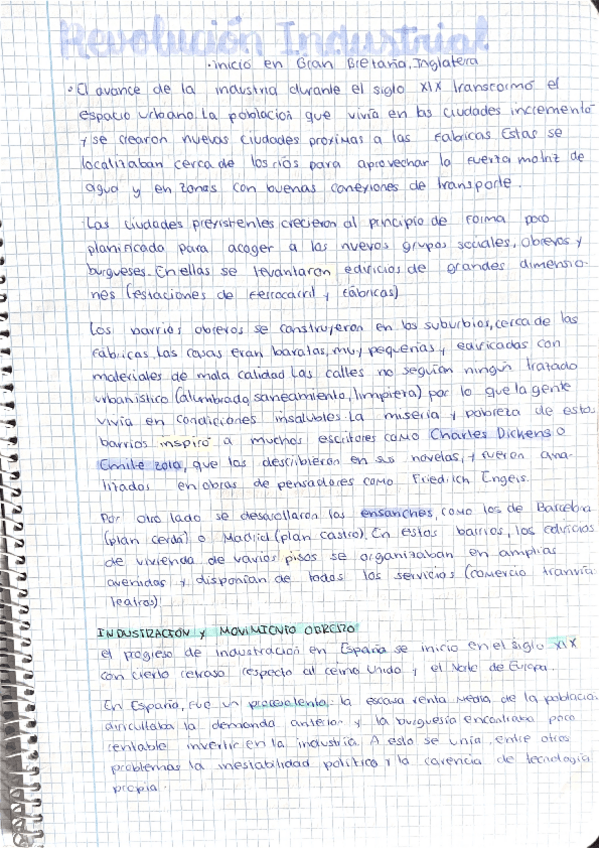 Revolución Industrial
·inicio en Gran Bretaña, Inglaterra
·El avance de la industria durante el siglo XIX transformó el
espacio urbano. La población que vivía en las ciudades incrementó
y se crearon nuevas ciudades proximas a las fabricas. Estas se
localizaban cerca de los ríos para aprovechar la fuerza motriz de
agua y en zonas con buenas conexiones de transporte.
Las ciudades preexistentes crecieron al principio de forma poco
planificado para acoger a los nuevos grupos sociales, obreros y
burgueses. En ellas se levantaron edificios de grandes dimensio-
nes (estaciones de ferrocarril y fábricas)
Los barrios obreros se construyeron en los suburbios, cerca de las
fábricas. Las casas eran baratas, muy pequeñas y edificadas con
materiales de mala calidad. Las calles no seguían ningún tratado
urbanístico (alumbrado, saneamiento, limpieza) por lo que la gente
vivía en condiciones insalubles. La miseria y pobreza de estos
barrios inspiró a muchos escritores como Charles Dickens o
Emile Zola, que las describieron en sus novelas, y fueron ana-
lizados en obras de pensadores como Friedrich Engels.
Por otro lado se desarrollaron los ensanches, como los de Barcelona
(plan cerdá) o Madrid (plan castro). En estos barrios, los edificios
de vivienda de varios pisos se organizaban en amplias
avenidas y disponían de todos los servicios (comercio tranvía
teatros)
INDUSTRACIÓN Y MOVIMIENTO OBRERO
el progreso de industración en España se inicio en el siglo XIX
con cierto retraso respecto al reino Unido y el Norte de Europa.
En España, fue un proceso lento: la escasa renta media de la población
dificultaba la demanda anterior y la burguesía encontraba poco
rentable invertir en la industria. A esto se unía, entre otros
problemas la inestabilidad político y la carencia de tecnología
propia.